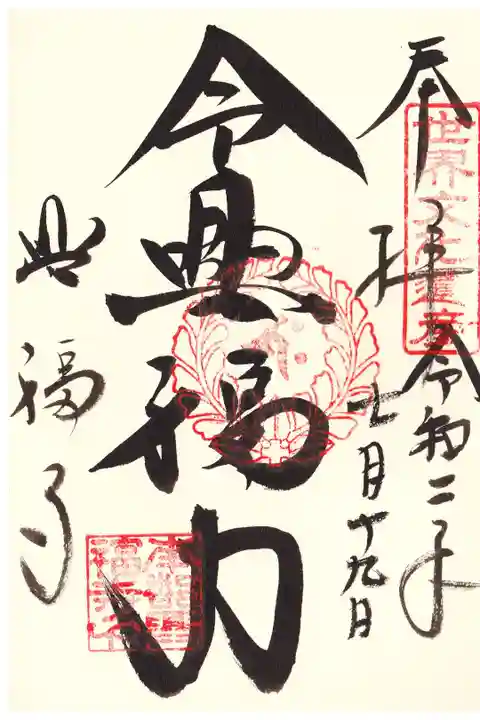 奉拝
世界文化遺産
令和二年
七月十九日
令興福力
興福寺